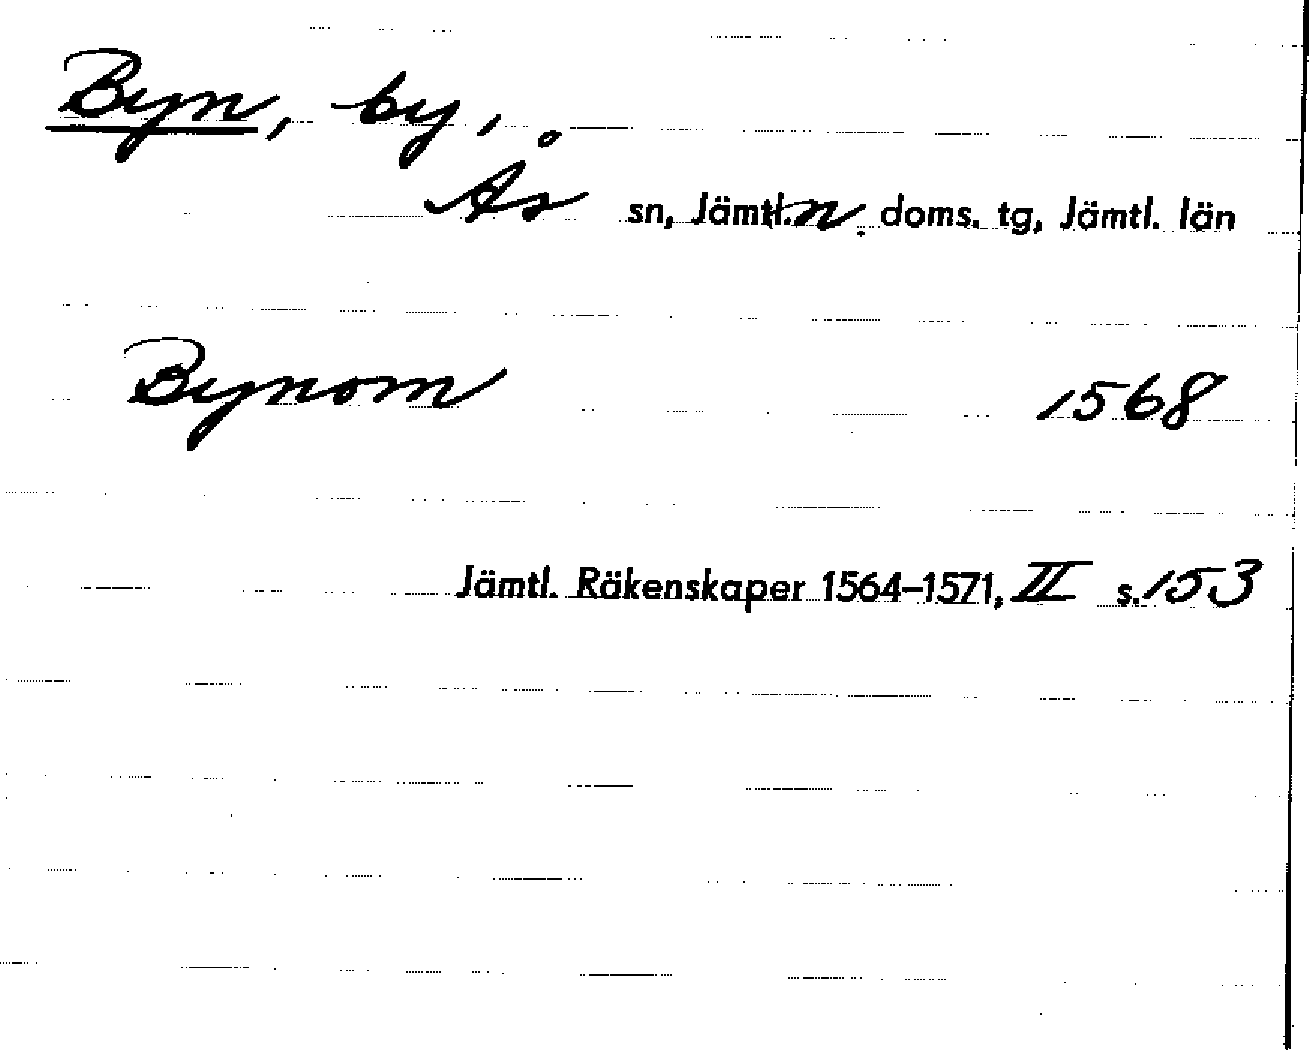 Byn, by,
Ås sn, Jämtl. n. doms. tg, Jämtl. län
Bynom 1568
Jämtl. Räkenskaper 1564–1571, II s. 153